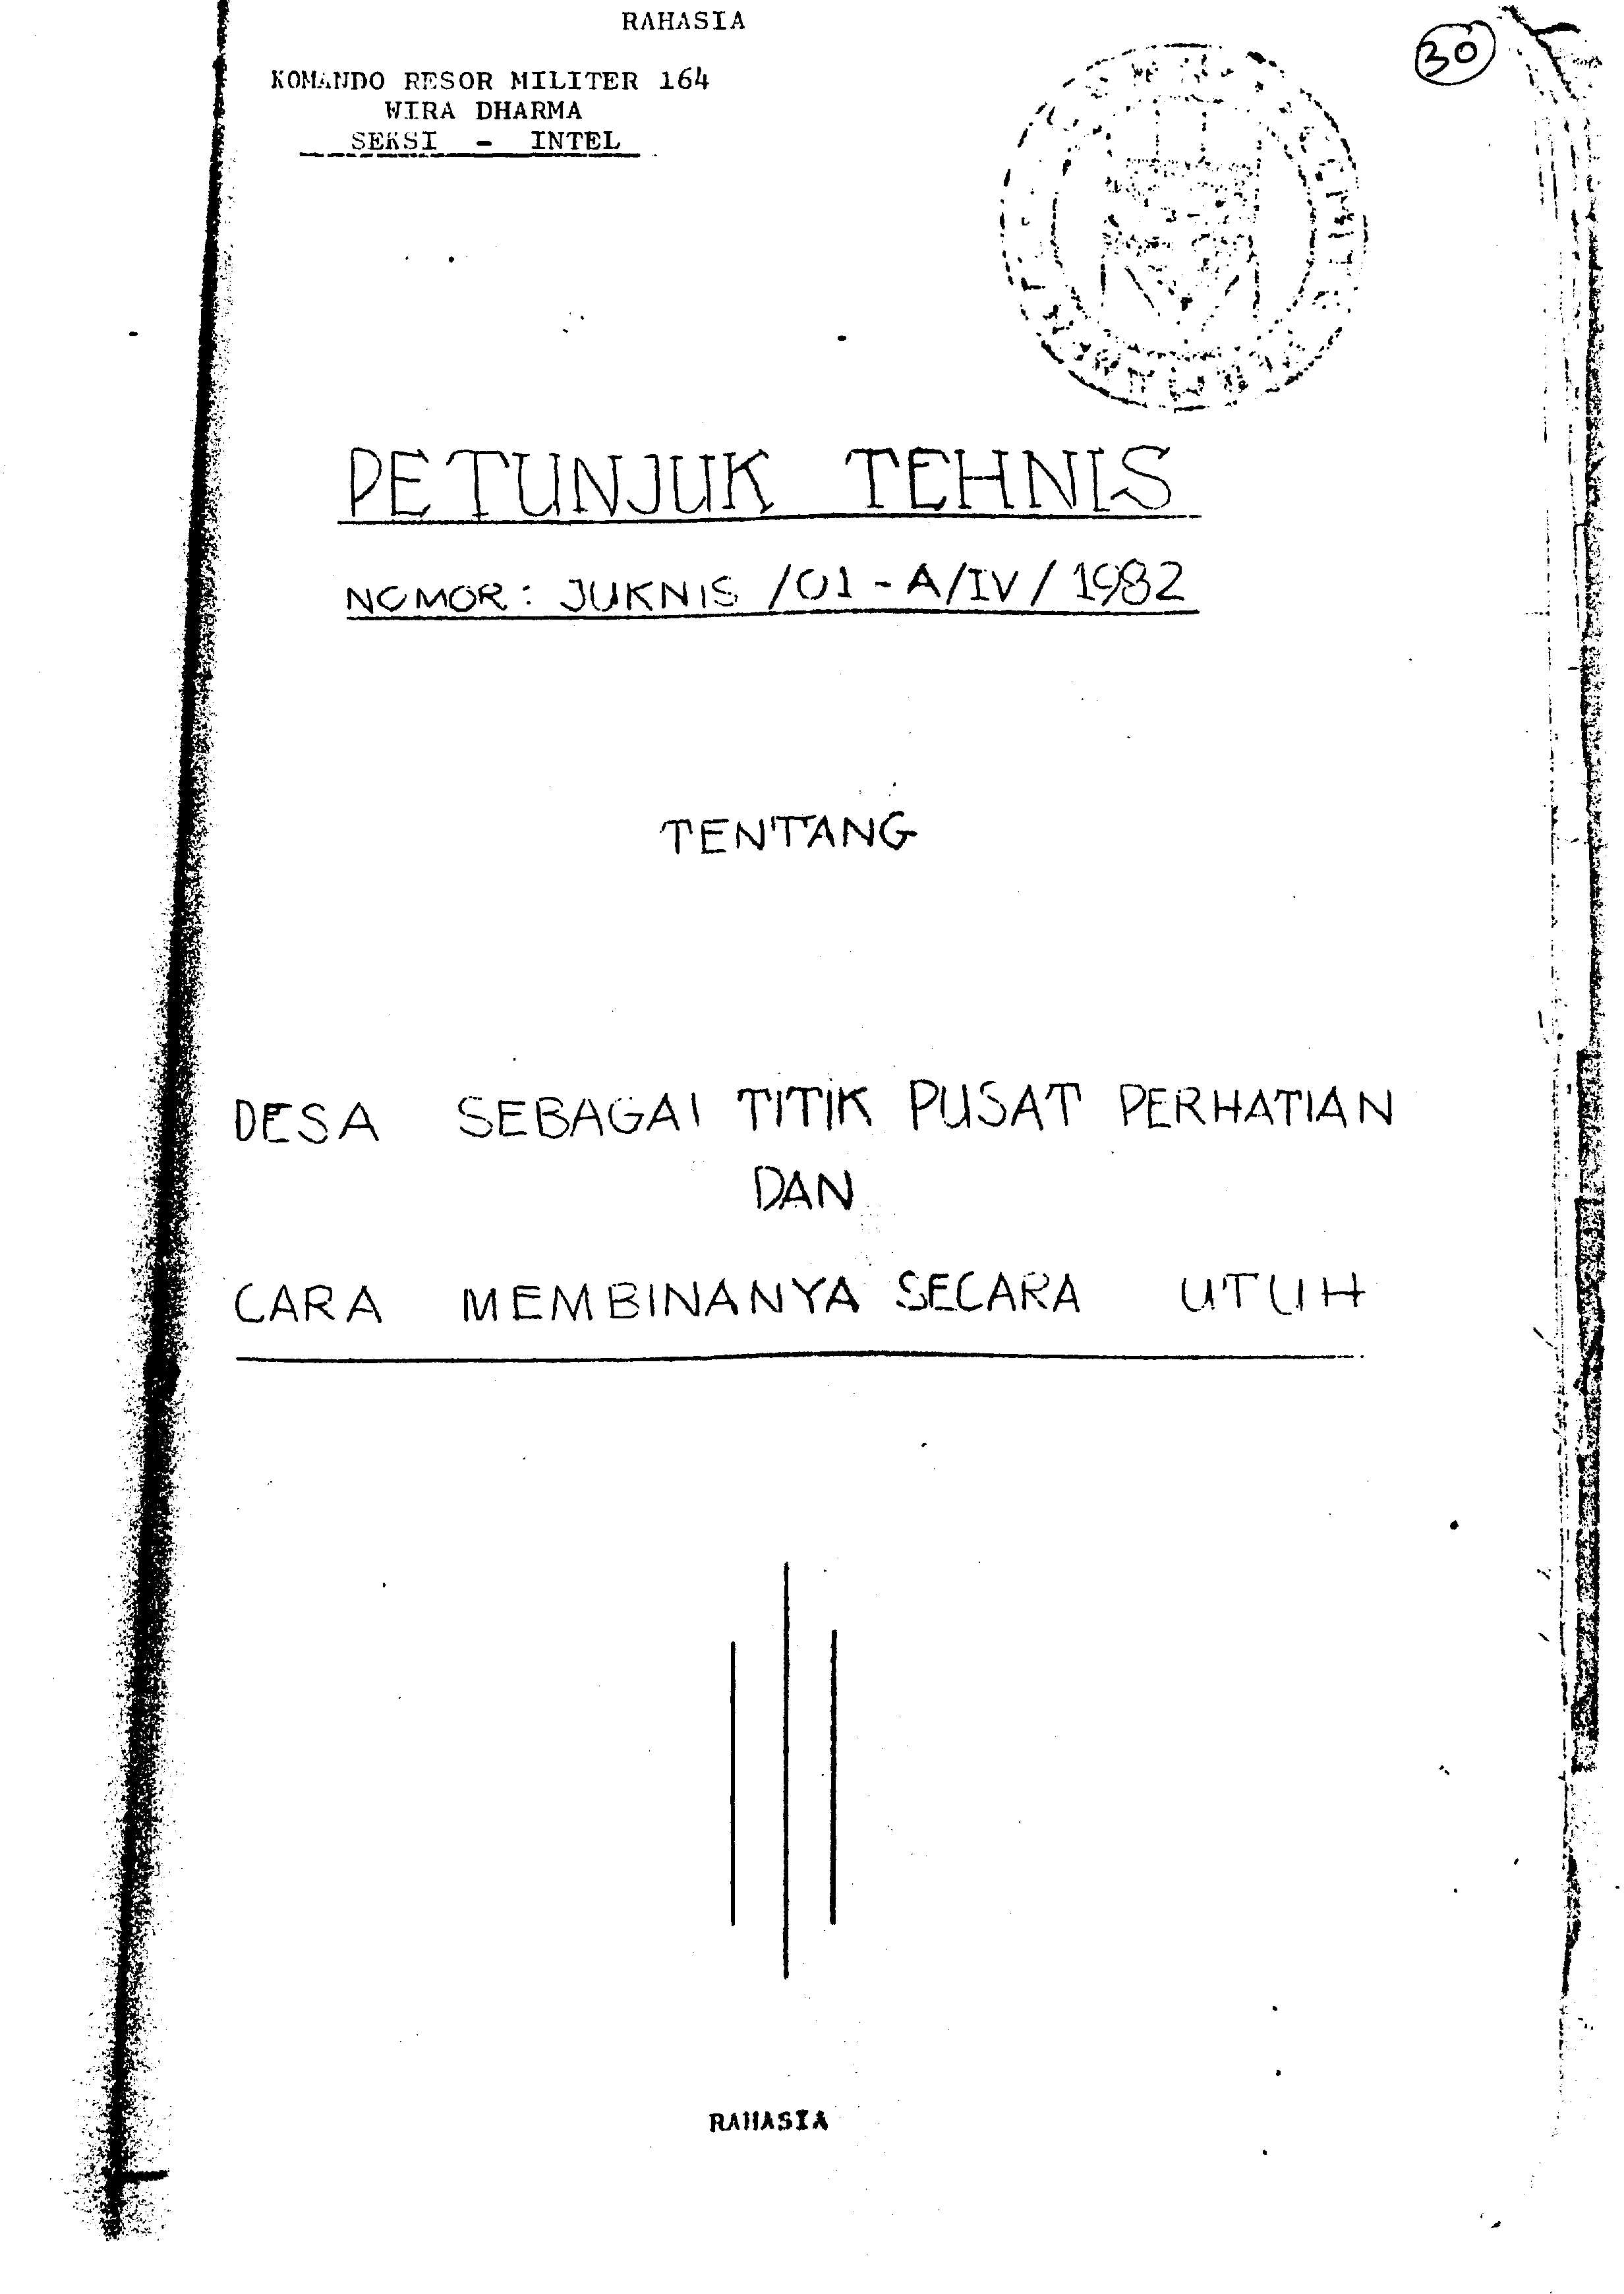 RAHASIA
30
KOMANDO RESOR MILITER 164
WIRA DHARMA
SEKSI - INTEL
PETUNJUK TEHNIS
NOMOR: JUKNIS /01-A/IV/1982
TENTANG
DESA SEBAGAI TITIK PUSAT PERHATIAN
DAN
CARA MEMBINANYA SECARA UTUH
RAHASIA